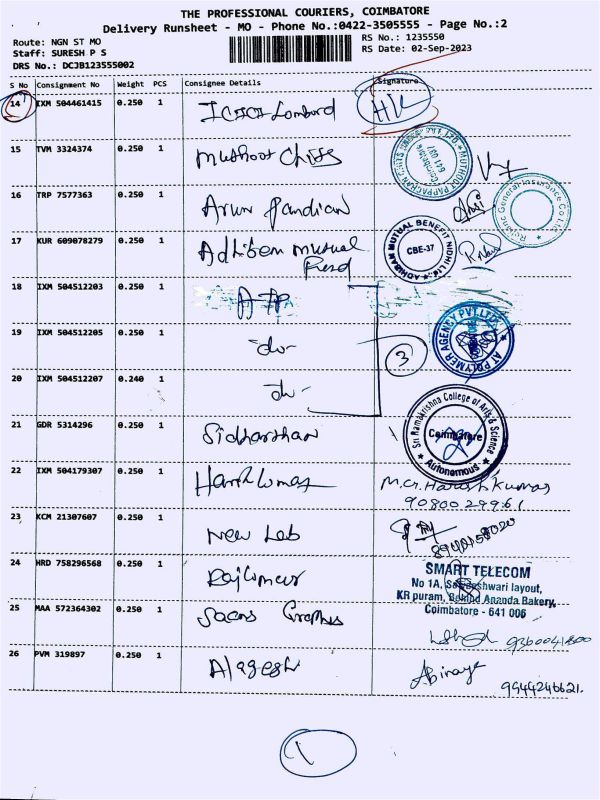 THE PROFESSIONAL COURIERS, COIMBATORE
Delivery Runsheet - MO - Phone No.:0422-3505555 - Page No.:2
Route: NGN ST MO
Staff: SURESH P S
DRS No.: DCJB123555002
RS No.: 1235550
RS Date: 02-Sep-2023
S No Consignment No Weight PCS Consignee Details Signature
14 IXM 504461415 0.250 1 ICICI Lombard
15 TVM 3324374 0.250 1 Muthoot Chits
MUTHOOT PAPPACHAN CHITS INDIA PVT LTD
Coimbatore
641 037
16 TRP 7577363 0.250 1 Arun Pandian
Reliance General Insurance Co. Ltd.
17 KUR 609078279 0.250 1 Mutual
MUTUAL BENEFIT NIDHI LTD.
CBE-37
18 IXM 504512203 0.250 1 ATP
19 IXM 504512205 0.250 1 -do-
3
AT POLYMER AGENCY PVT LTD
20 IXM 504512207 0.240 1 -do-
21 GDR 5314296 0.250 1 Sidharthan
Sri Ramakrishna College of Arts & Science
Coimbatore
Autonomous
22 IXM 504179307 0.250 1 Harish Kumar
M.G. Harish Kumar
9080029961
23 KCM 21307607 0.250 1 New Lab
24 HRD 758296568 0.250 1 Rajkumar
SMART TELECOM
No 1A, layout,
KR puram, Behind Ananda Bakery,
Coimbatore - 641 006
25 MAA 572364302 0.250 1 Graphics
26 PVM 319897 0.250 1 Alagesh
Abinaya
9944246621.
1